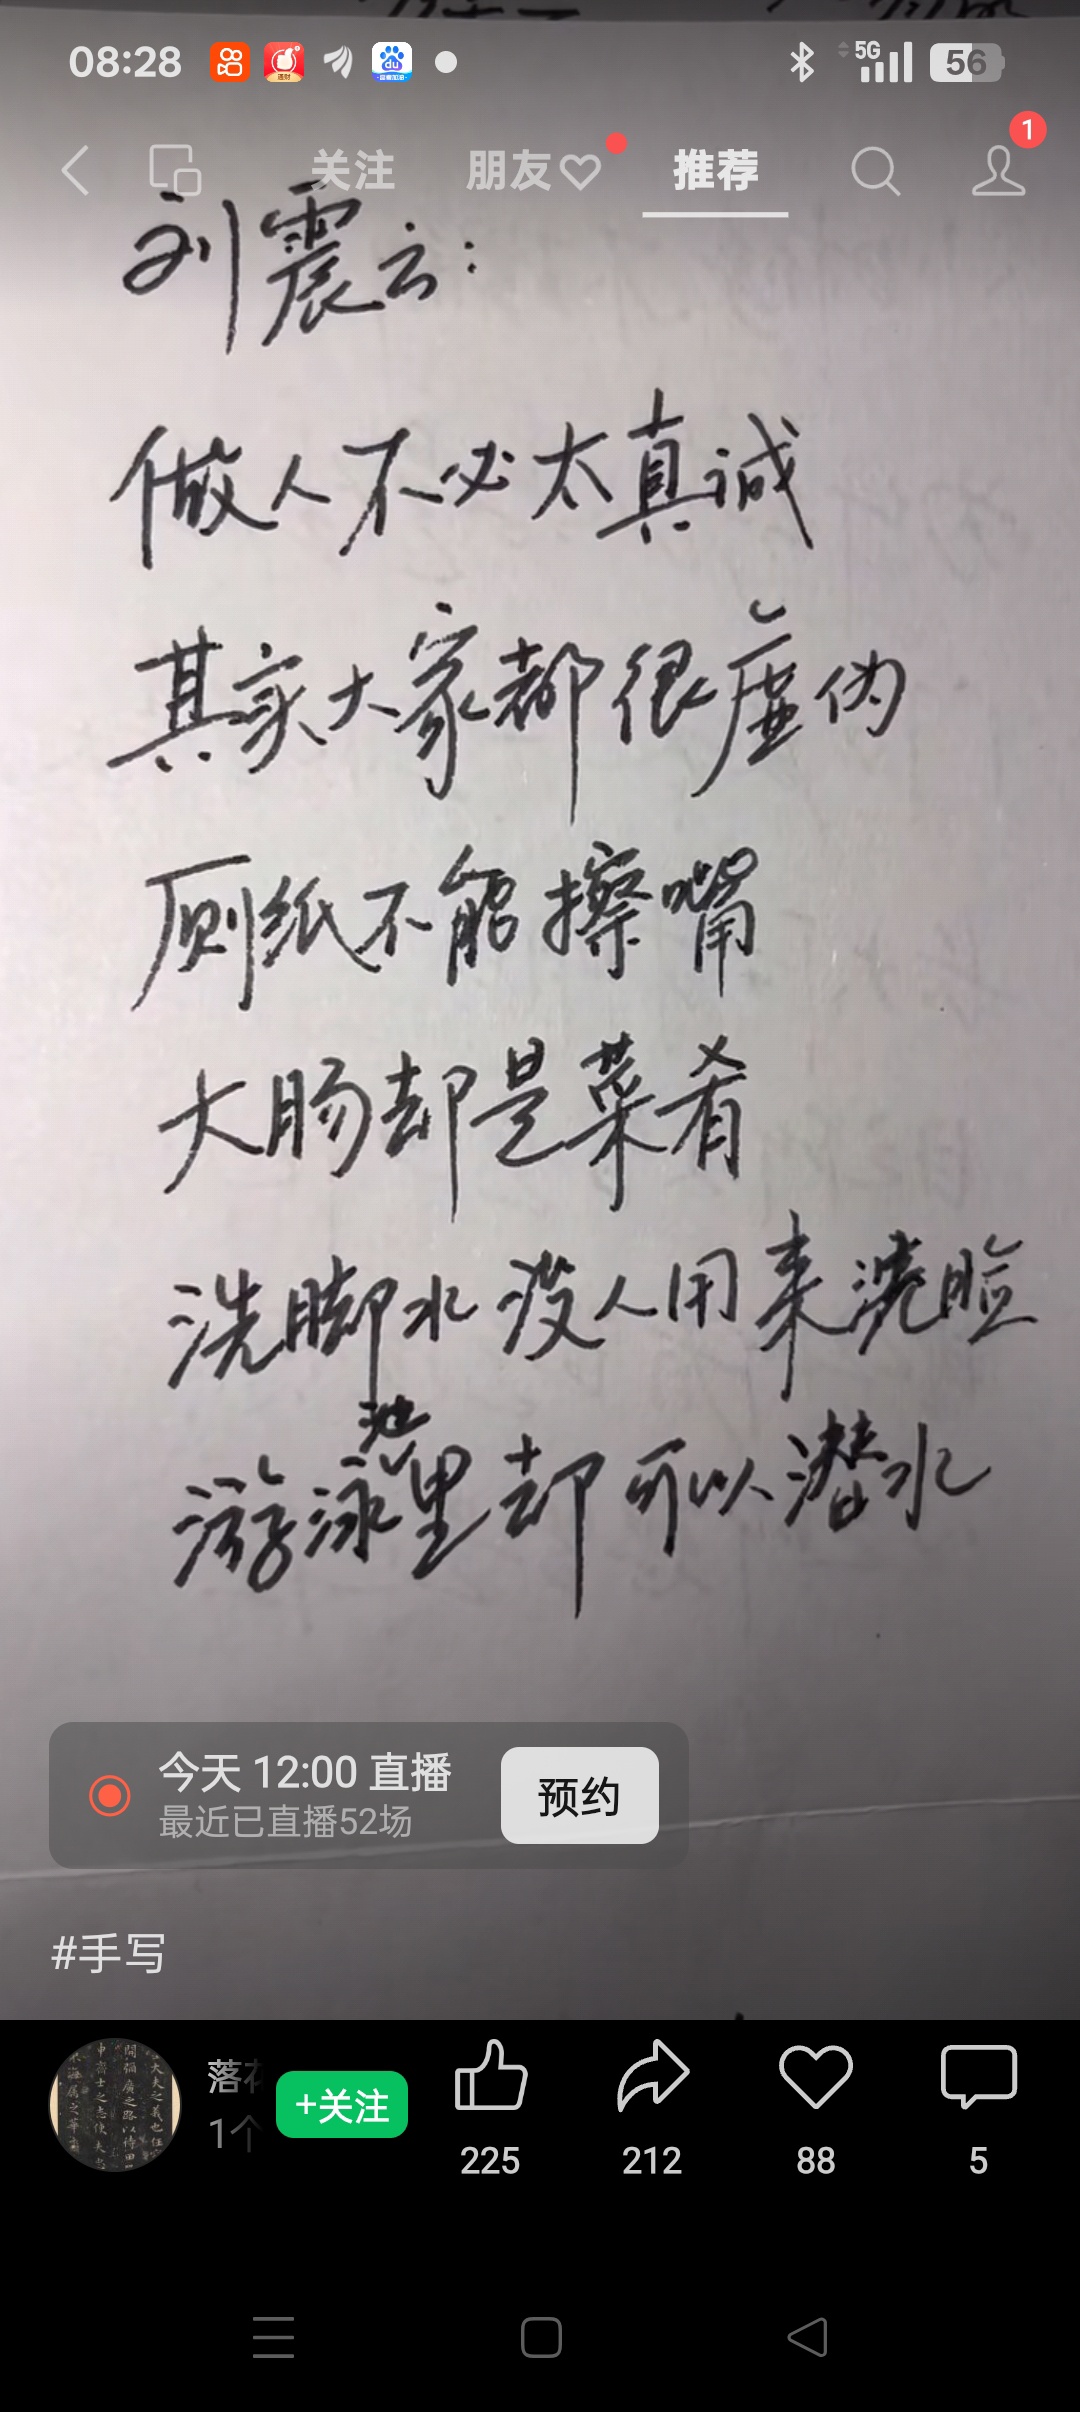 08:28
5G
56
关注 朋友 推荐
1
刘震云:
做人不必太真诚
其实大家都很虚伪
厕纸不能擦嘴
大肠却是菜肴
洗脚水没人用来洗脸
游泳池里却可以潜水
今天 12:00 直播
最近已直播52场
预约
#手写
落
1个
+关注
225
212
88
5